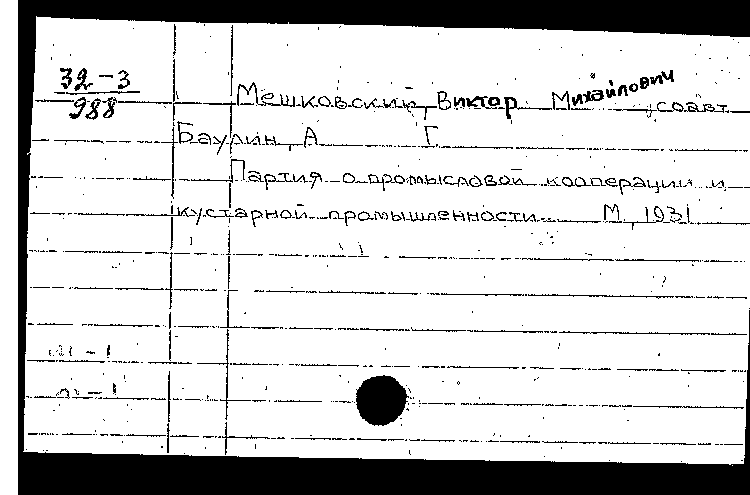 32-3
988
Мешковский, Виктор Михайлович, соавт.
Баулин, А. Г.
Партия о промысловой кооперации и
кустарной промышленности. М., 1931.